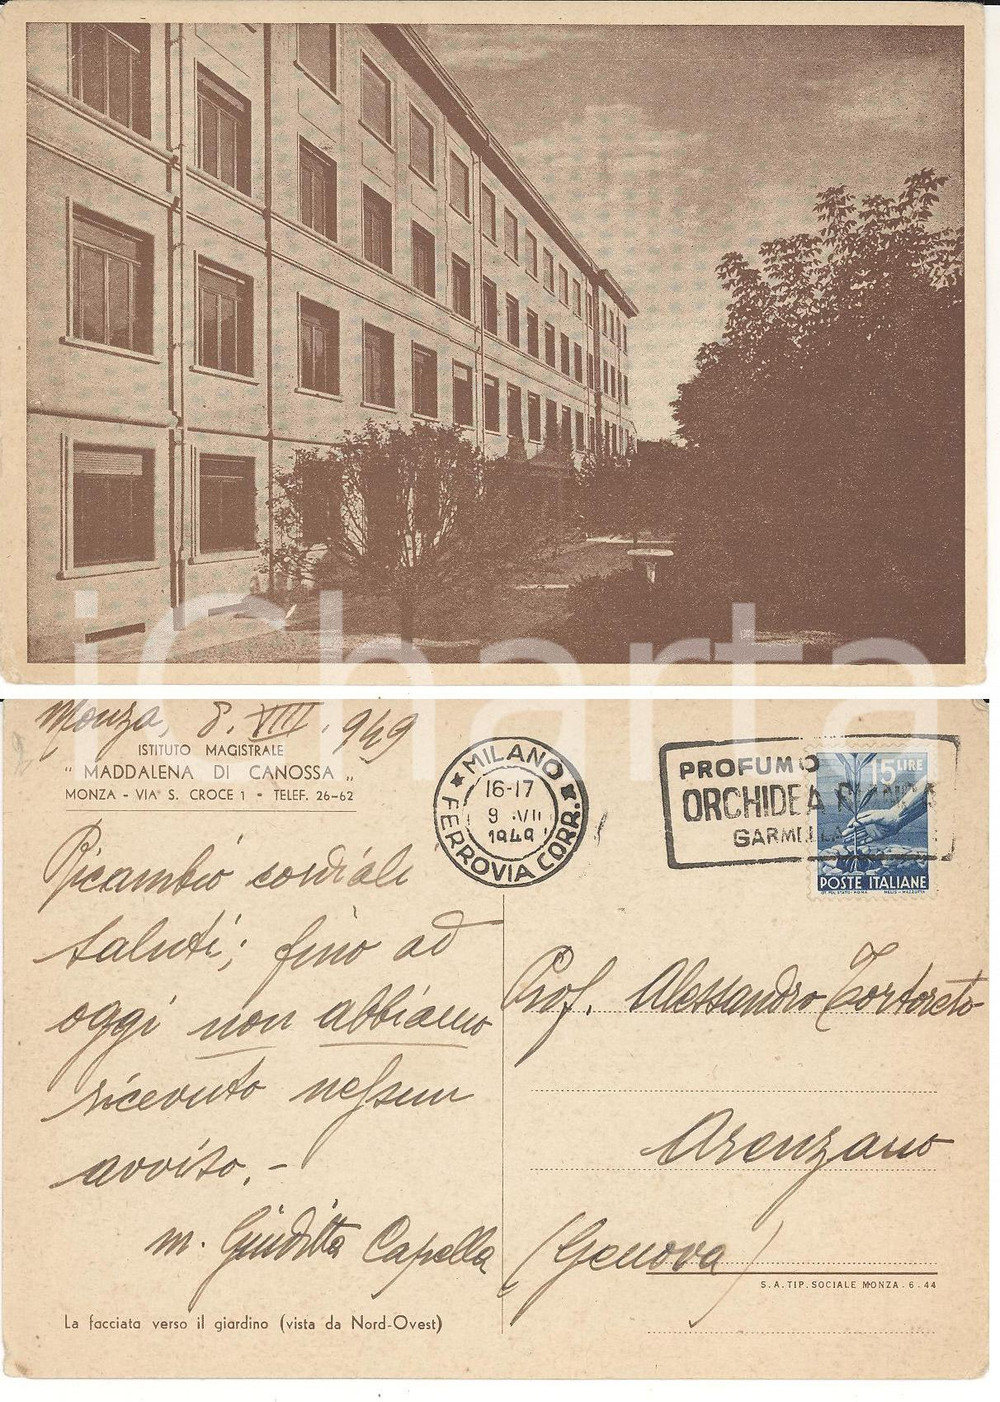 iCharta
Monza, 8. VIII. 949
ISTITUTO MAGISTRALE
" MADDALENA DI CANOSSA "
MONZA - VIA S. CROCE 1 - TELEF. 26-62
MILANO
16-17
9 VII
1949
FERROVIA CORR.
PROFUMO
ORCHIDEA
GARMELLA
15 LIRE
POSTE ITALIANE
Ricambio cordiali
saluti; fino ad
oggi non abbiamo
ricevuto nessun
avviso. -
m. Giuditta Capella
Prof. Alessandro Tortoreto
Arenzano
(Genova)
S. A. TIP. SOCIALE MONZA - 6 - 44
La facciata verso il giardino (vista da Nord-Ovest)